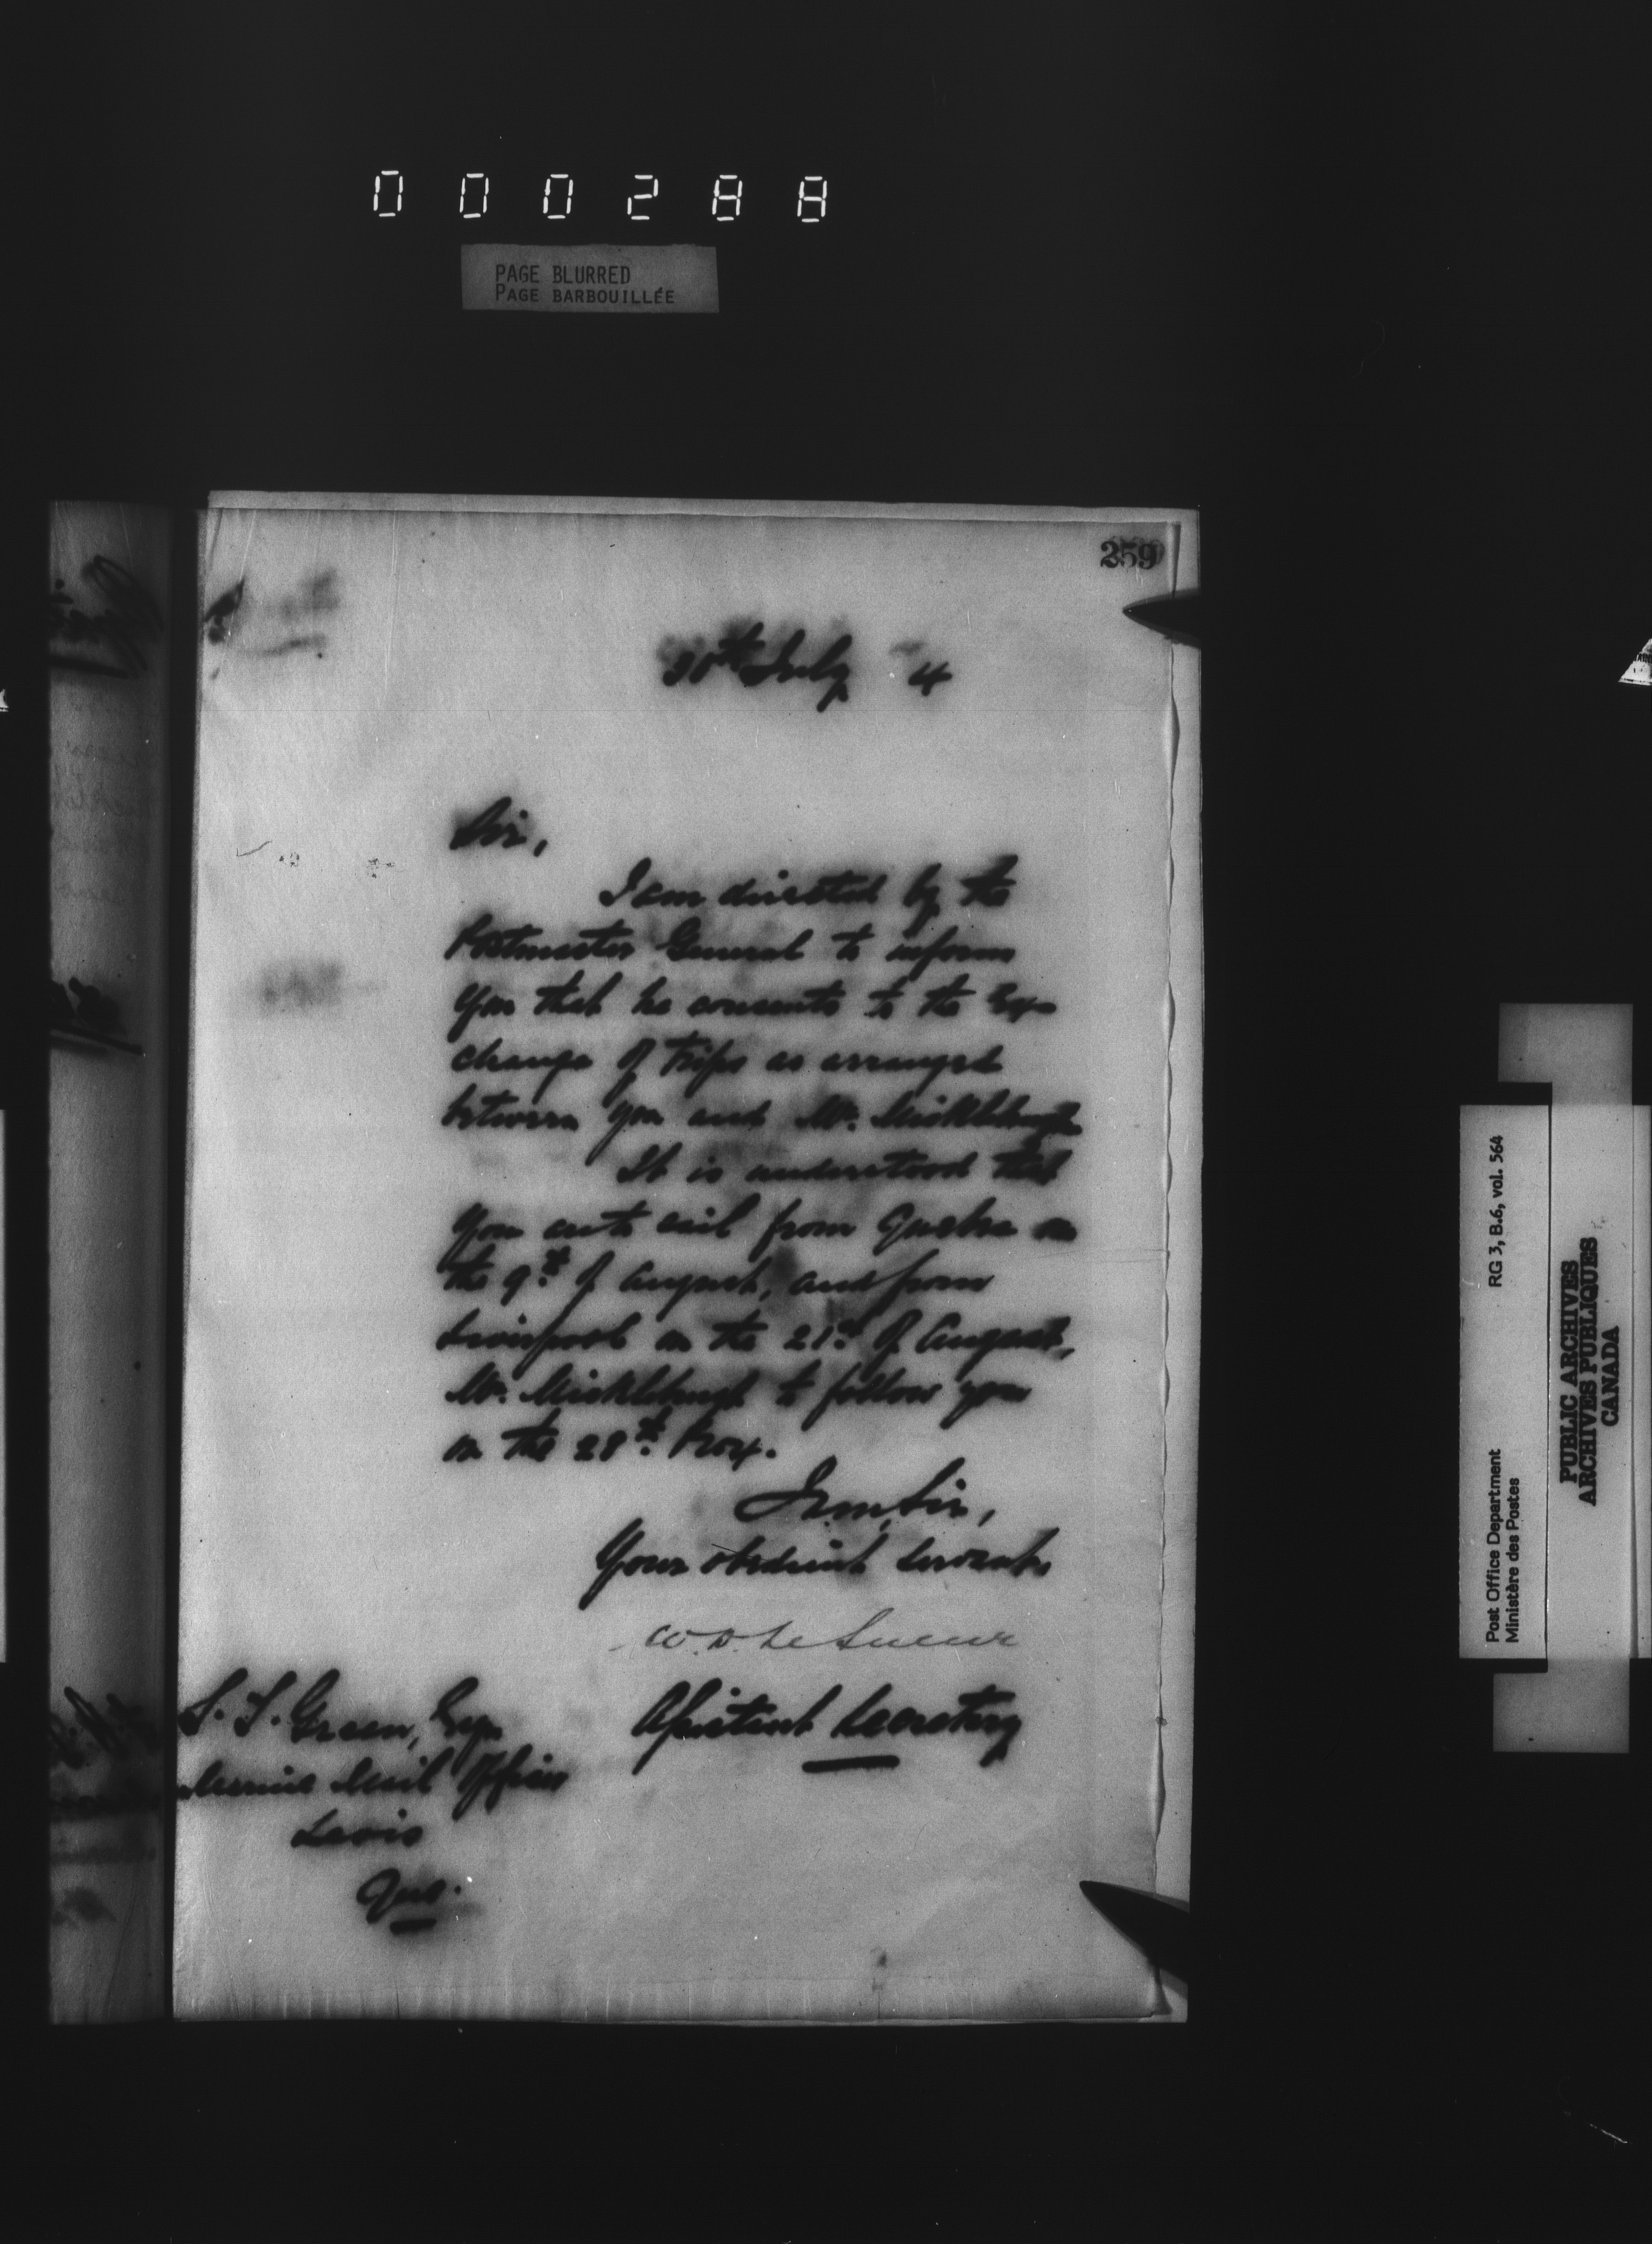 000288
PAGE BLURRED
PAGE BARBOUILLÉE
259
30th July 4
Sir,
I am directed by the
Postmaster General to inform
you that he consents to the Ex-
change of Trips as arranged
between you and Mr. Micklebough
It is understood that
you are to sail from Quebec on
the 9th. of August, and from
Liverpool on the 21st. of August,
Mr. Micklebough to follow you
on the 28th. Prox.
I am, Sir,
Your obedient Servant,
W. D. Le Sueur
Assistant Secretary
S. T. Green, Esq.
Marine Mail Officer
Levis
Que.
Post Office Department RG 3, B.6, vol. 564
Ministère des Postes
PUBLIC ARCHIVES
ARCHIVES PUBLIQUES
CANADA